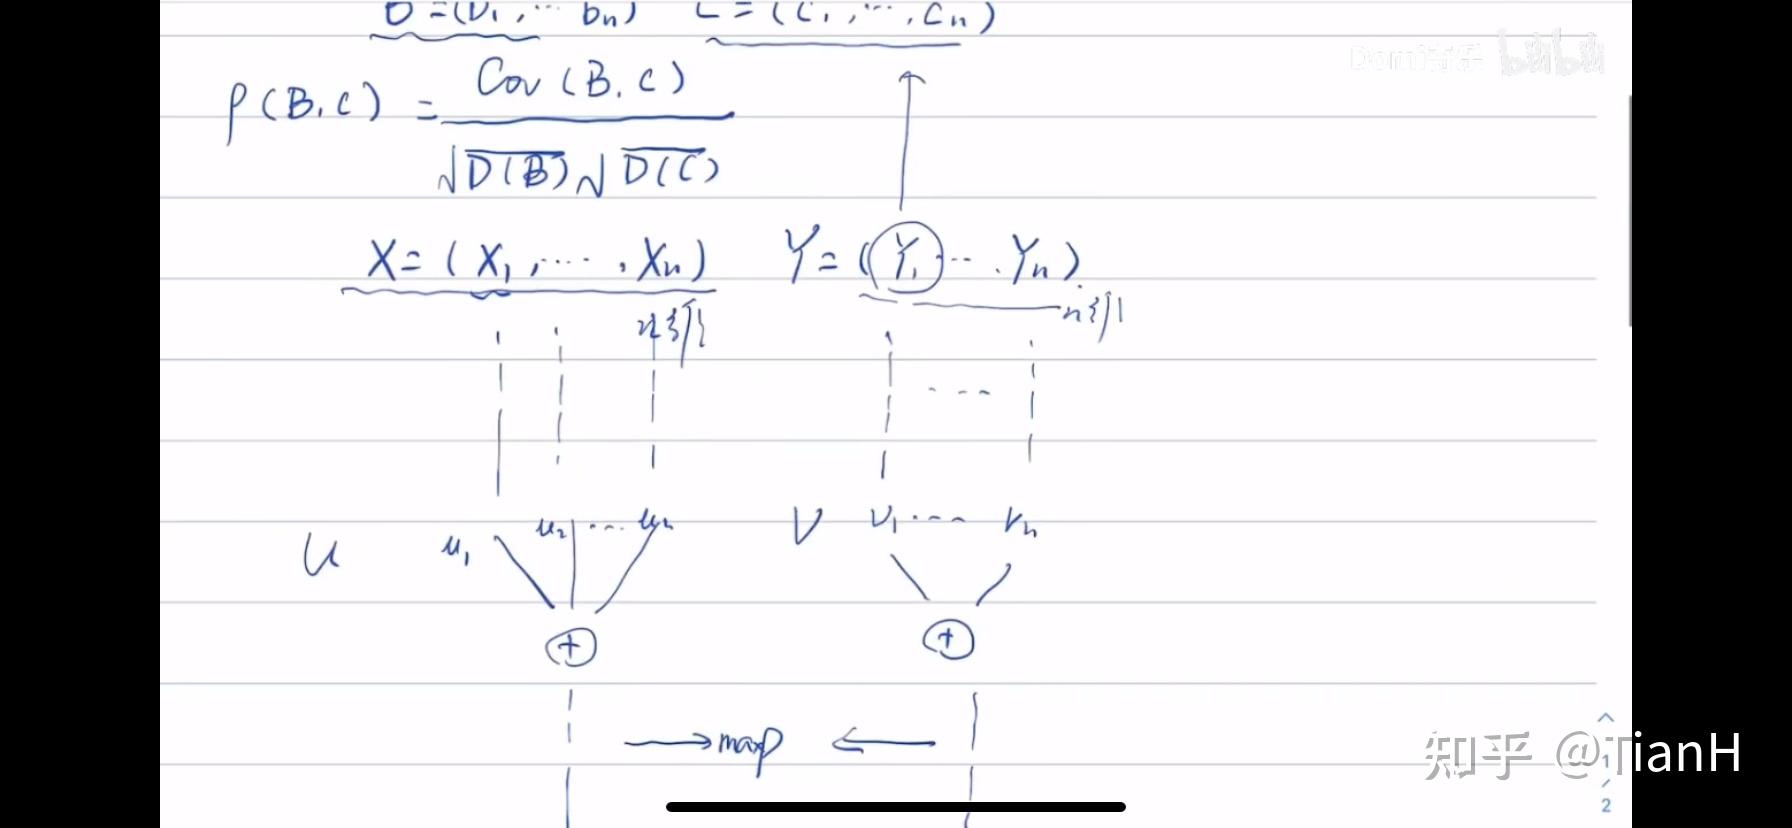 B = (b₁, ... bₙ) C = (C₁, ..., Cₙ)
Domi奇乐 bilibili
ρ(B, C) = Cov(B, C) / √D(B) √D(C)
X = (X₁, ..., Xₙ) Y = (Y₁ ... Yₙ)
n列 n列
...
U u₁ u₂ ... uₙ V v₁ ... vₙ
+ +
→ maxρ ←
知乎 @TianH
1/2